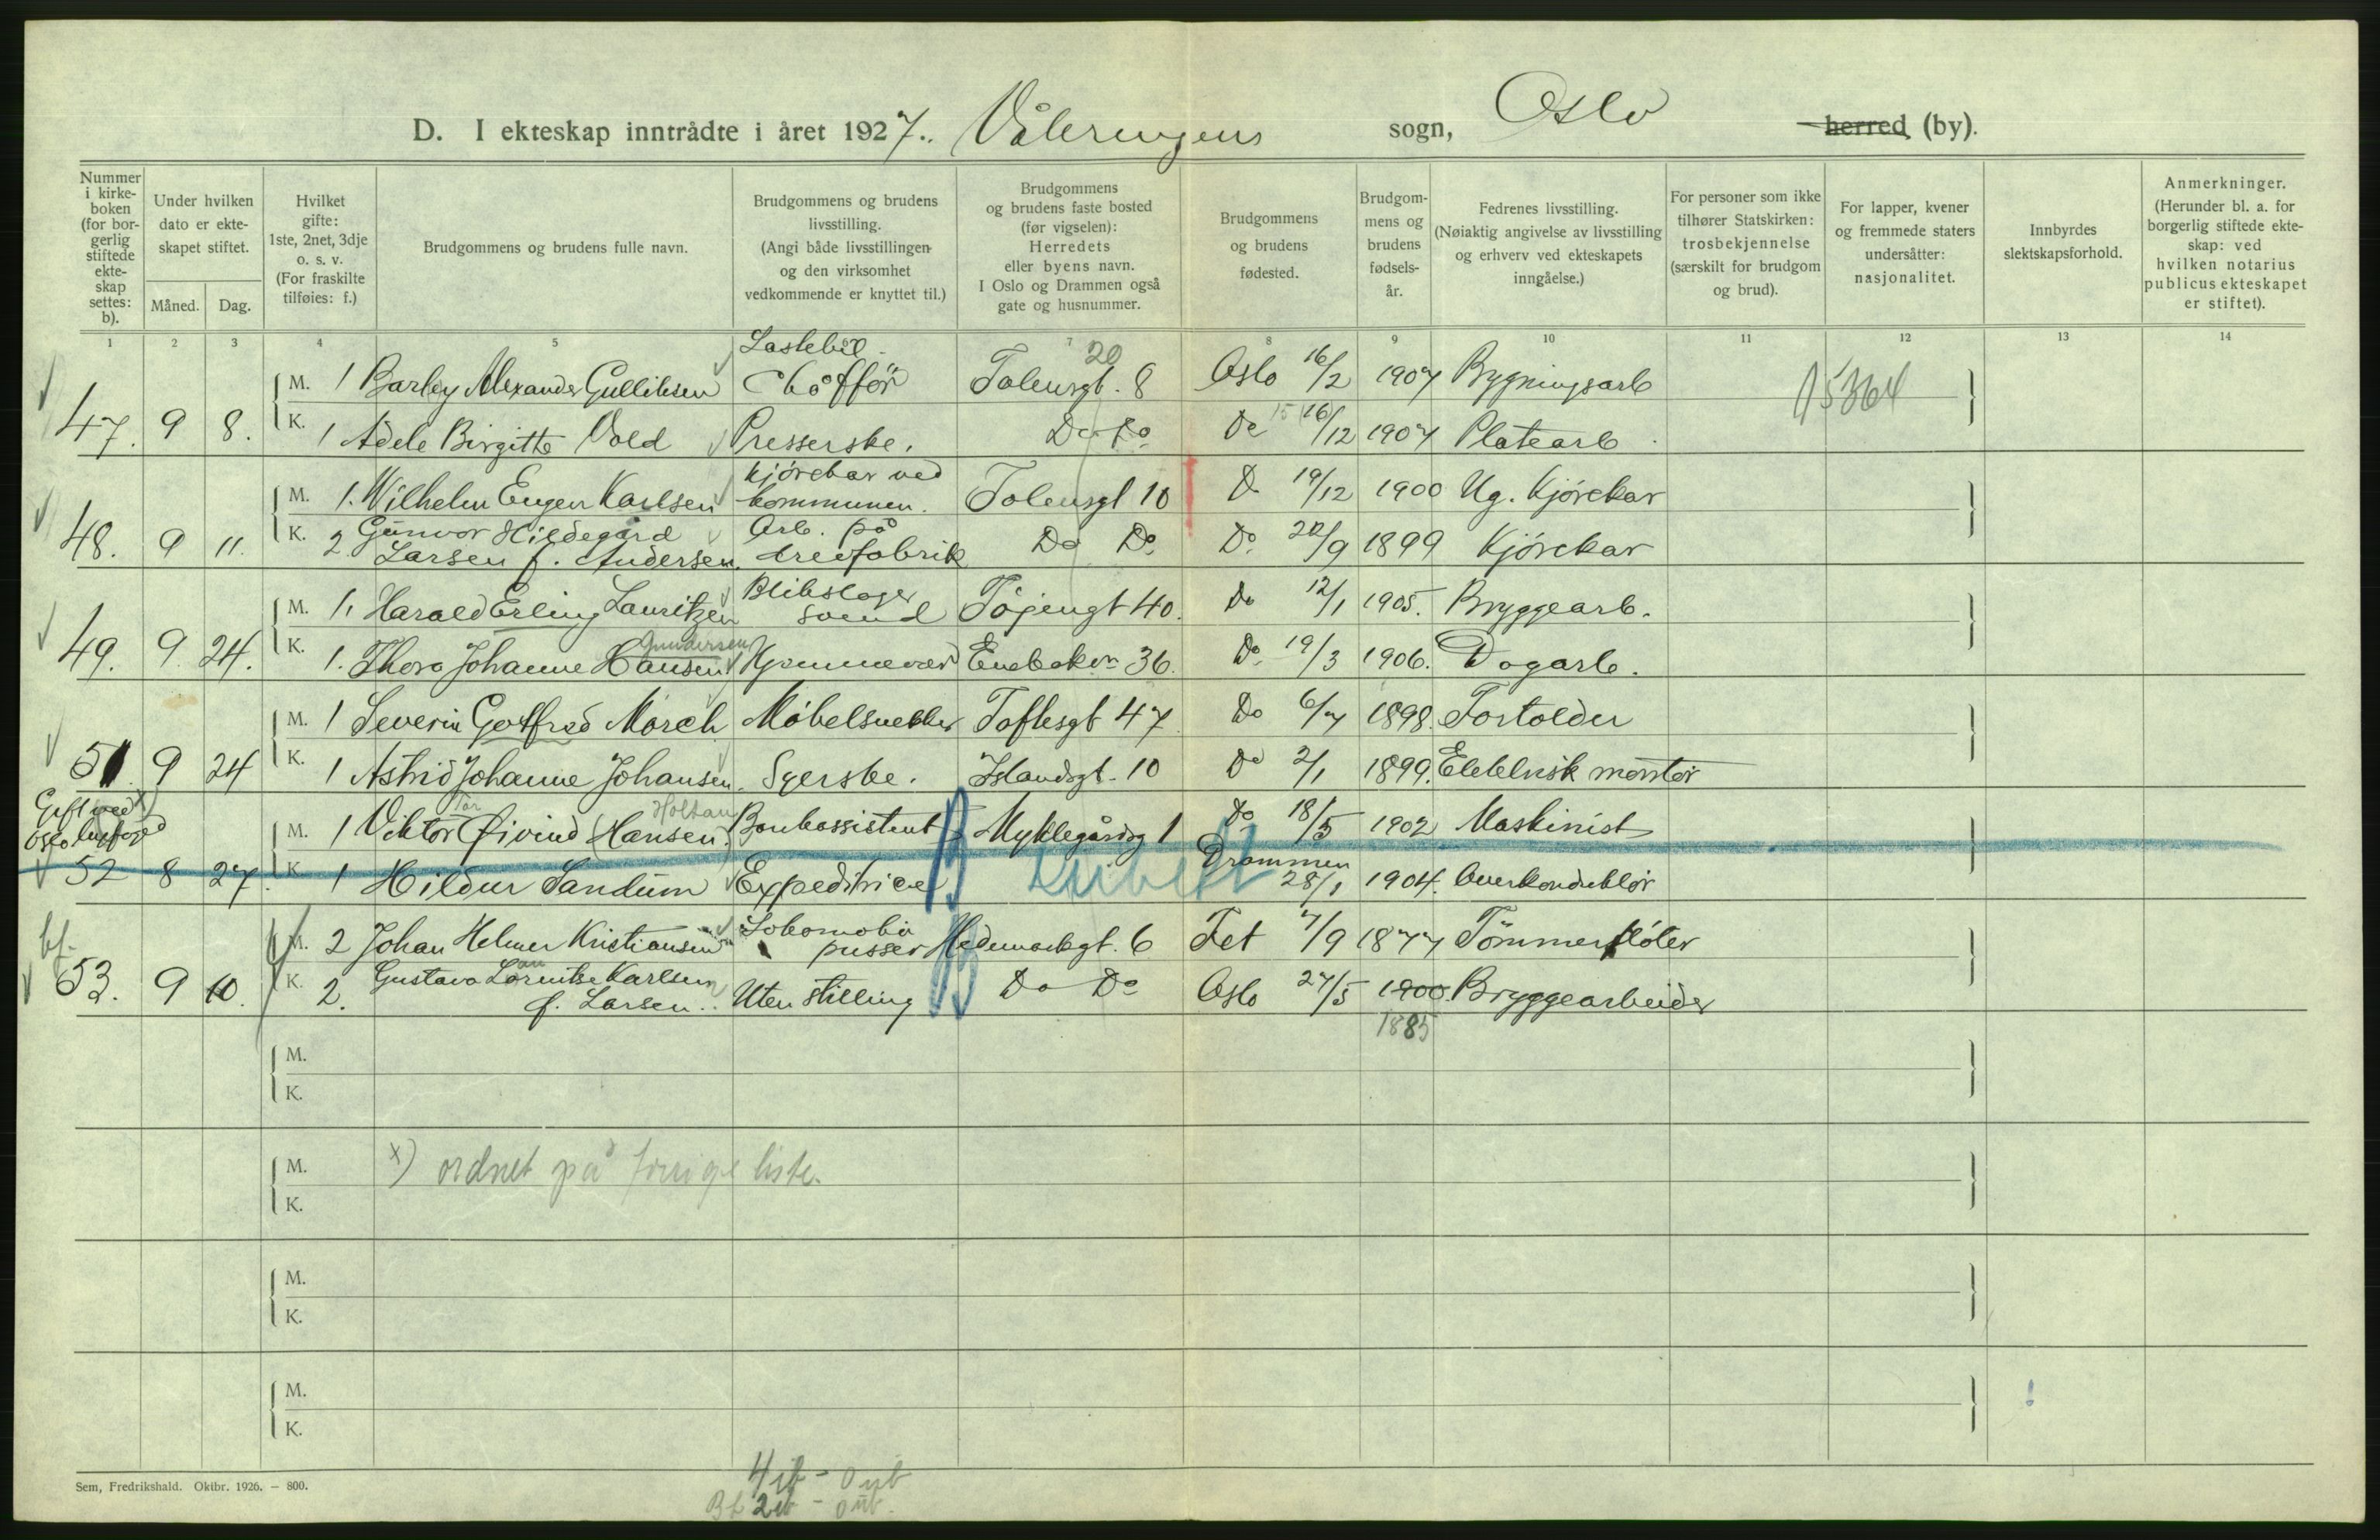 D. I ekteskap inntrådte i året 1927. Våleringens sogn, Oslo herred (by).
Nummer i kirkeboken (for borgerlig stiftede ekteskap settes: b).
Under hvilken dato er ekteskapet stiftet.
Måned. Dag.
Hvilket gifte: 1ste, 2net, 3dje o. s. v. (For fraskilte tilføies: f.)
Brudgommens og brudens fulle navn.
Brudgommens og brudens livsstilling. (Angi både livsstillingen og den virksomhet vedkommende er knyttet til.)
Brudgommens og brudens faste bosted (før vigselen): Herredets eller byens navn. I Oslo og Drammen også gate og husnummer.
Brudgommens og brudens fødested.
Brudgommens og brudens fødselsår.
Fedrenes livsstilling. (Nøiaktig angivelse av livsstilling og erhverv ved ekteskapets inngåelse.)
For personer som ikke tilhører Statskirken: trosbekjennelse (særskilt for brudgom og brud).
For lapper, kvener og fremmede staters undersåtter: nasjonalitet.
Innbyrdes slektskapsforhold.
Anmerkninger. (Herunder bl. a. for borgerlig stiftede ekteskap: ved hvilken notarius publicus ekteskapet er stiftet).
1 2 3 4 5 6 7 8 9 10 11 12 13 14
Lastebil 20
M. 1 Barley Alexander Gulliksen Chófför Tolensgt. 8 Oslo 16/2 1907 Bygningsarb 15364
47. 9 8. K. 1 Adele Birgitte Vold Presserske. Do Do Do 15 16/12 1907 Platearb.
Kjórekar ved
M. 1. Wilhelm Eugen Karlsen kommunen. Tolensgt 10 Do 19/12 1900 Ug. Kjórekar
48. 9 11. K. 2 Gunvor Hildegård Arb. på
Larsen f. Andersen. trevfabrik Do Do Do 20/9 1899 Kjórekar
Blikslager
M. 1. Harald Erling Lauritzen svend Tøjengt 40. Do 12/1 1905. Bryggearb.
Gundersen
49. 9. 24. K. 1. Thora Johanne Hansen Hjemmevær Enebakvn 36. Do 19/3 1906. Dagarb.
M. 1 Severin Gotfred Mórch Móbelsnekker Toftesgt 47 Do 6/7 1898. Fortolder
51. 9 24 K. 1 Astrid Johanne Johansen. Syerske. Islandsgt. 10 Do 2/1 1899. Elektrisk montór
Gift ved x)
Oslo byfoged
Tor Holtan
M. 1 Viktor Øivind Hansen. Bankassistent Myklegårdsg 1 Do 18/5 1902 Maskinist
52 8 27. K. 1 Hildur Sandum Expeditrice Drammen 28/1 1904. Overkonduktór
bf.
M. 2 Johan Helmer Kristiansen Lokomotiv
pusser Hedemarksgt. 6 Fet 7/9 1877 Tömmerflóter
53. 9 10. K. 2. Gustava Lorentse Karlsen
f. Larsen.. Uten stilling Do Do Oslo 27/5 1900. Bryggearbeider
1885
M.
K.
M. x) ordnet på forrige liste.
K.
M.
K.
M.
K.
Sem, Fredrikshald. Oktbr. 1926. — 800.